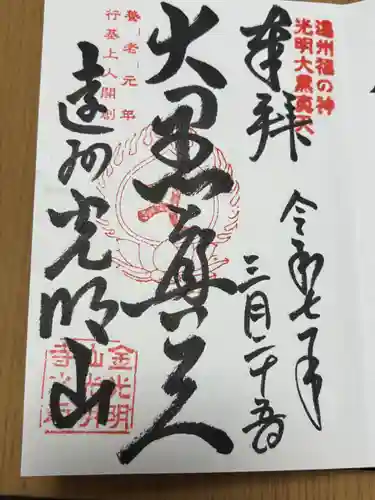 遠州福の神
光明大黒真天
奉拝
令和七年
三月二十五日
大黒真天
養老元年
行基上人開創
遠州光明山
金光明